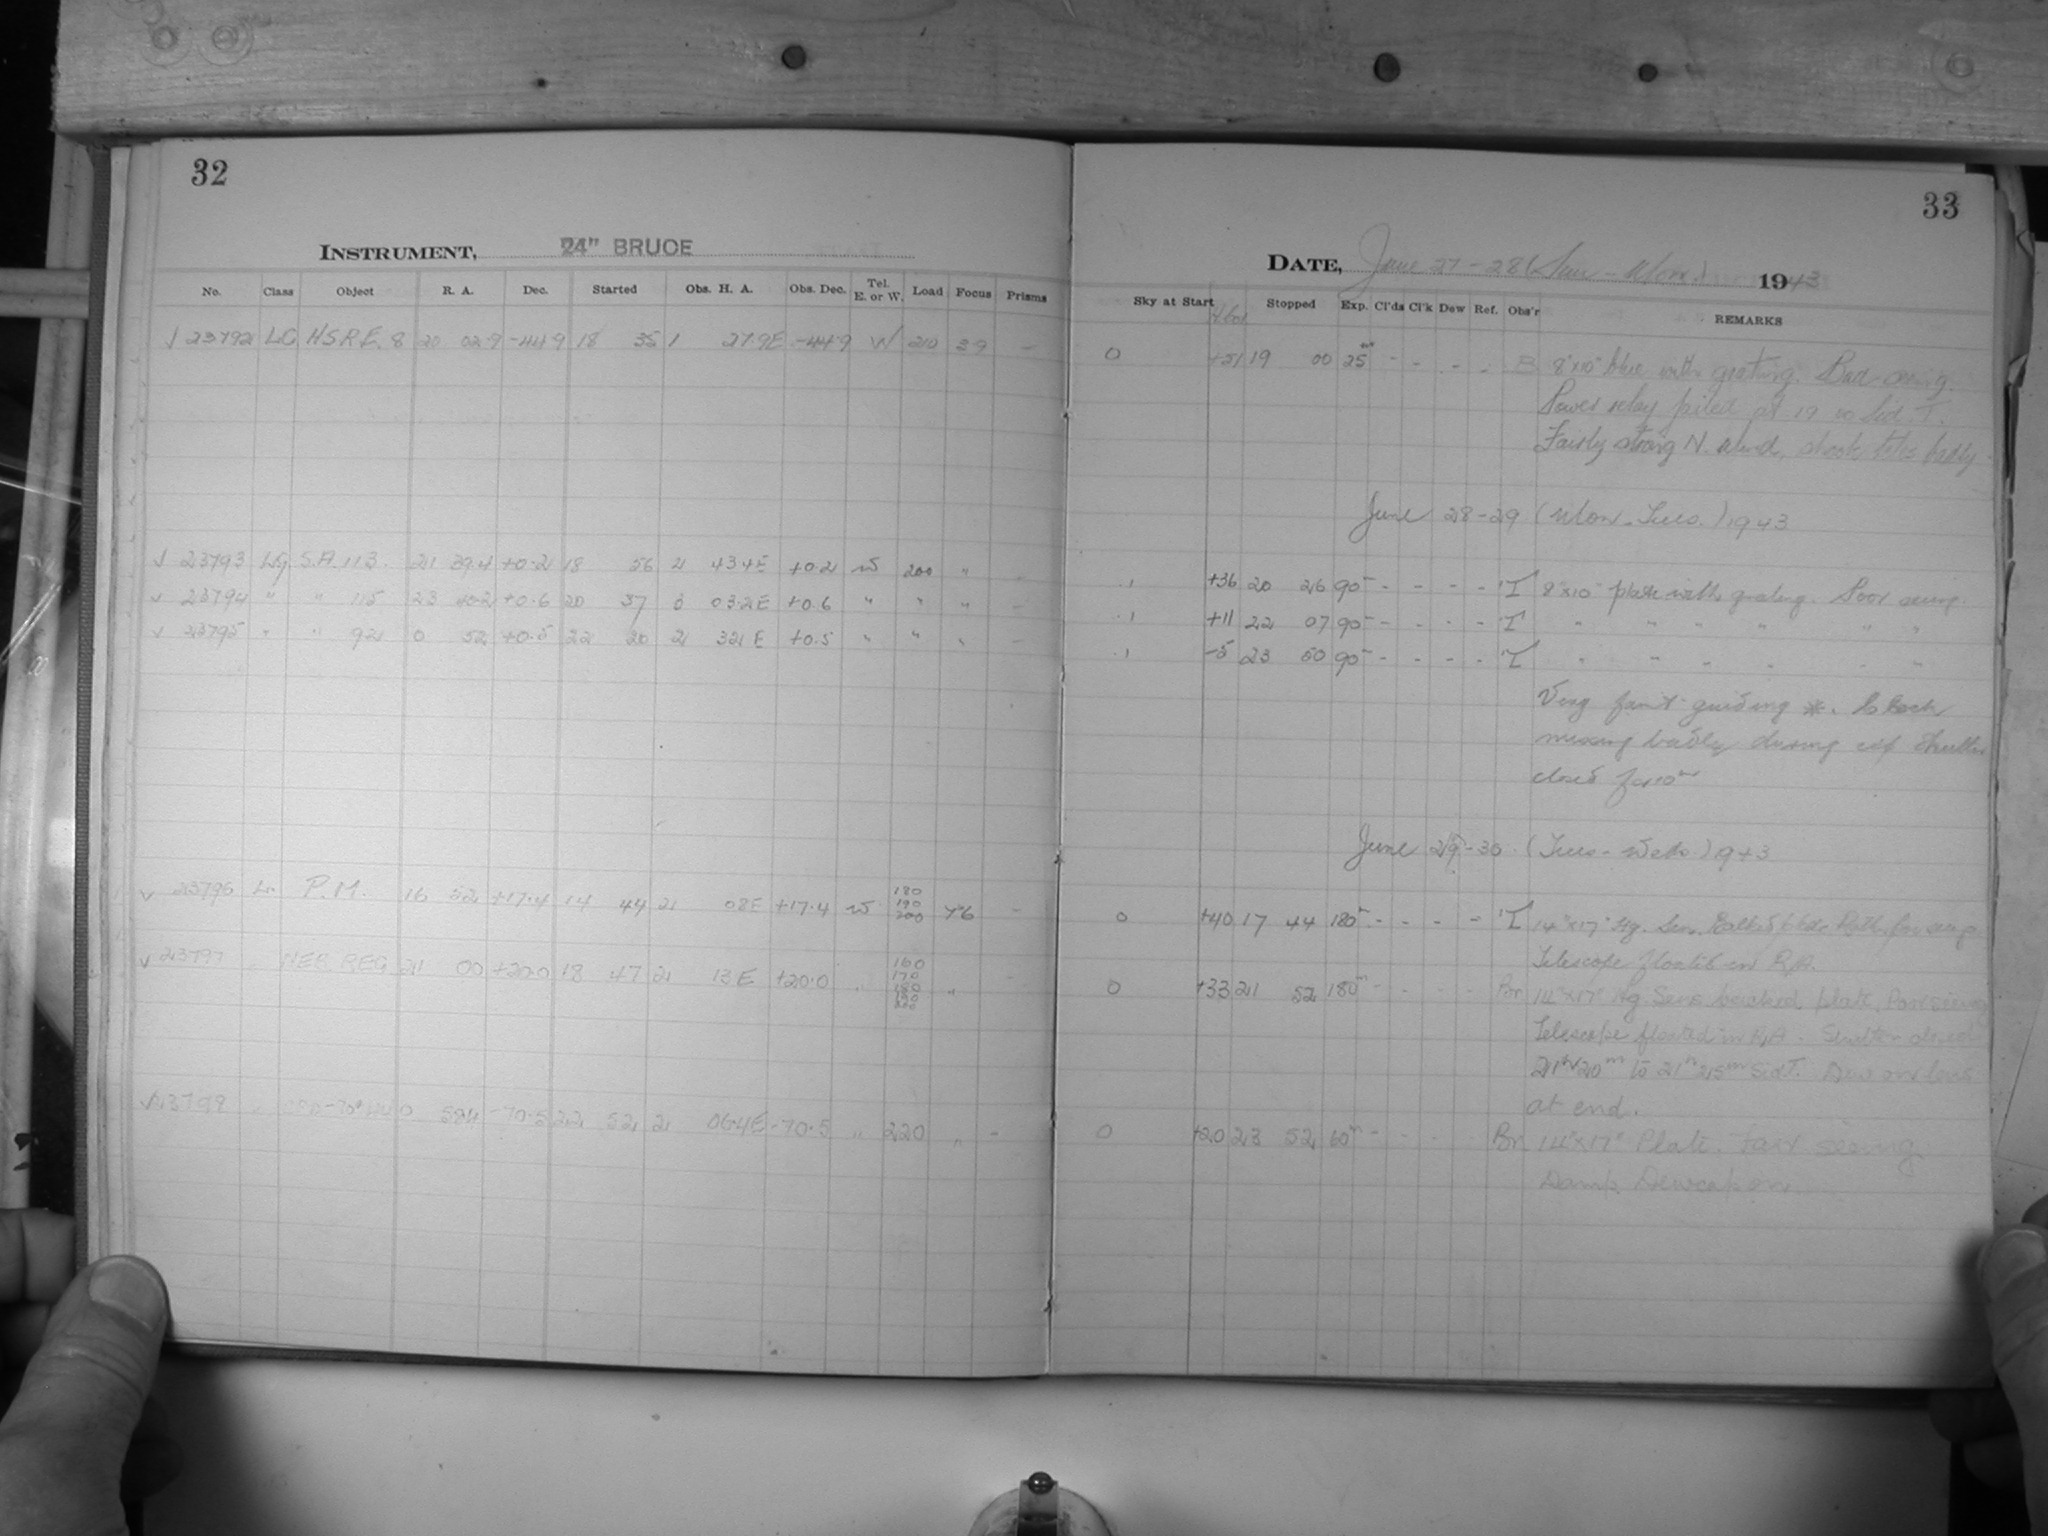 32
INSTRUMENT, 24" BRUCE
No. Class Object R. A. Dec. Started Obs. H. A. Obs. Dec. Tel. E. or W. Load Focus Prisms
√ 23792 LG H.S.R.E. 8 20 02.9 -44.9 18 35 1 27.9E -44.9 W 210 39 -
√ 23793 Lg. S.A. 113 21 39.4 +0.2 18 56 2 43.4E +0.2 W 200 " -
√ 23794 " " 115 23 +0.6 20 37 03.2E +0.6 " " " -
√ 23795 " " 92 0 52 +0.5 22 20 2 32 E +0.5 " " " -
√ 23796 P.M. 16 52 +17.4 14 44 2 08E +17.4 W 180 190 200 -
√ 23797 " NEB. REG. 21 00 +20.0 18 47 2 13E +20.0 " 160 170 180 190 200 " -
√ 23798 " 0 58.4 -70.5 22 52 2 06.4E -70.5 " 220 " -
33
DATE, June 27-28 (Sun - Mon.) 1943
Sky at Start Stopped Exp. Cl'ds Cl'k Dew Ref. Obs'r REMARKS
0 +51 19 00 25 - - - - B 8"x10" blue with grating. Bad seeing.
Power relay failed at 19 00 Sid. T.
Fairly strong N. wind, shook tele badly.
June 28-29 (Mon - Tues.) 1943
.1 +36 20 26 90 - - - - T 8"x10" plate with grating. Poor seeing.
.1 +11 22 07 90 - - - - T " " " " " "
.1 -5 23 50 90 - - - - T " " " " " "
Very faint guiding *. Clock
missing badly during exp Shutter
closed for 10m
June 29-30 (Tues - Wed.) 1943
0 +40 17 44 180m - - - - T 14"x17" Hg. Sens.
Telescope floated in R.A.
0 +33 21 52 180m - - - - Br 14"x17" Hg. Sens. backed plate. Poor seeing
Telescope floated in R.A. Shutter closed
21h 20m to 21h 25m sid T. Dew on lens
at end.
0 +20 23 52 60m - - - - Br 14"x17" Plate. Fair seeing
Damp. Dewcap on.